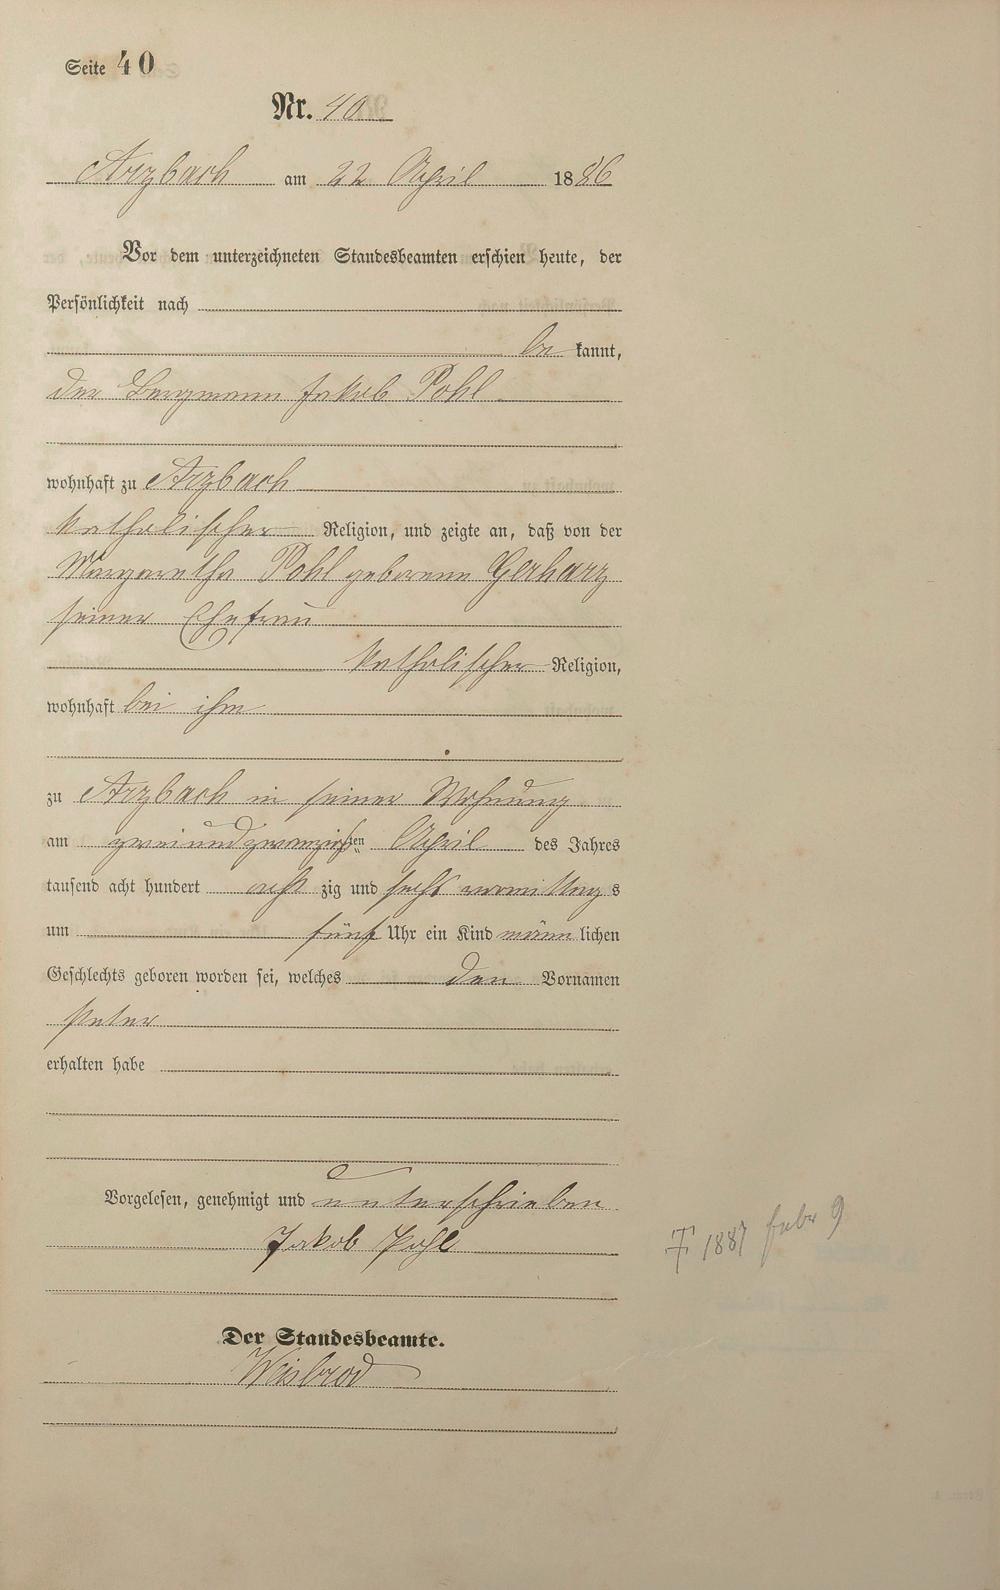 Seite 40
Nr. 40
Arzbach am 22 April 1886
Vor dem unterzeichneten Standesbeamten erschien heute, der
Persönlichkeit nach
be kannt,
der Bergmann Jakob Pohl
wohnhaft zu Arzbach
katholischer Religion, und zeigte an, daß von der
Margaretha Pohl geborene Gerharz
seiner Ehefrau
katholischer Religion,
wohnhaft bei ihm
zu Arzbach in seiner Wohnung
am zweiundzwanzigsten April des Jahres
tausend acht hundert acht zig und sechs vormittags
um fünf Uhr ein Kind männlichen
Geschlechts geboren worden sei, welches den Vornamen
Peter
erhalten habe
Vorgelesen, genehmigt und unterschrieben
Jakob Pohl
Ŧ 1887 Febr 9
Der Standesbeamte.
Weisbrod